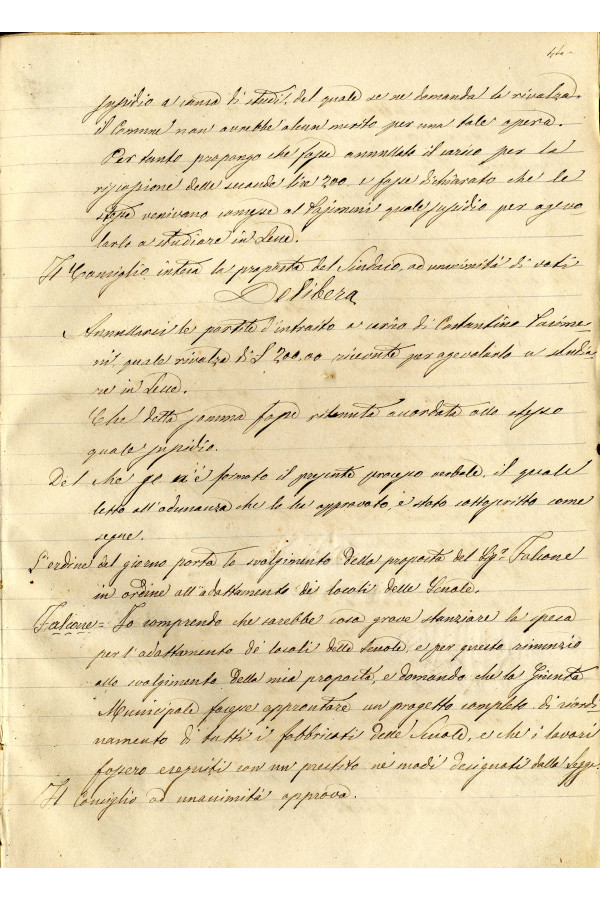 sussidio a causa di studi, del quale se ne domanda la rivalza,
il Comune non avrebbe alcun merito per una tale opera.
Per tanto propongo che fosse annullato il carico per la
riscossione delle seconde lire 200, e fosse dichiarato che le
stesse venivano concesse al quale sussidio per agevo
larlo a studiare in Lecce.
Il Consiglio intesa la proposta del Sindaco, ad unanimità di voti
Delibera
Annullarsi le partite d'introito a carico di Costantino
ni, quale rivalza di £ 200,00 ricevute per agevolarlo a studia
re in Lecce.
Che detta somma fosse ritenuta accordata allo stesso
quale sussidio.
Del che se n'è formato il presente processo verbale, il quale
letto all'adunanza che lo ha approvato, è stato sottoscritto come
segue.
L'ordine del giorno porta lo svolgimento della proposta del Sig.r Falcone
in ordine all'adattamento dei locali delle Scuole.
Falcone = Io comprendo che sarebbe cosa grave stanziare la spesa
per l'adattamento de' locali delle Scuole, e per questo rinunzio
allo svolgimento della mia proposta, e domando che la Giunta
Municipale facesse approntare un progetto completo, di riordi
namento di tutti i fabbricati delle Scuole, e che i lavori
fossero eseguiti con un prestito ne' modi designati dalla Legge.
Il Consiglio ad unanimità approva.